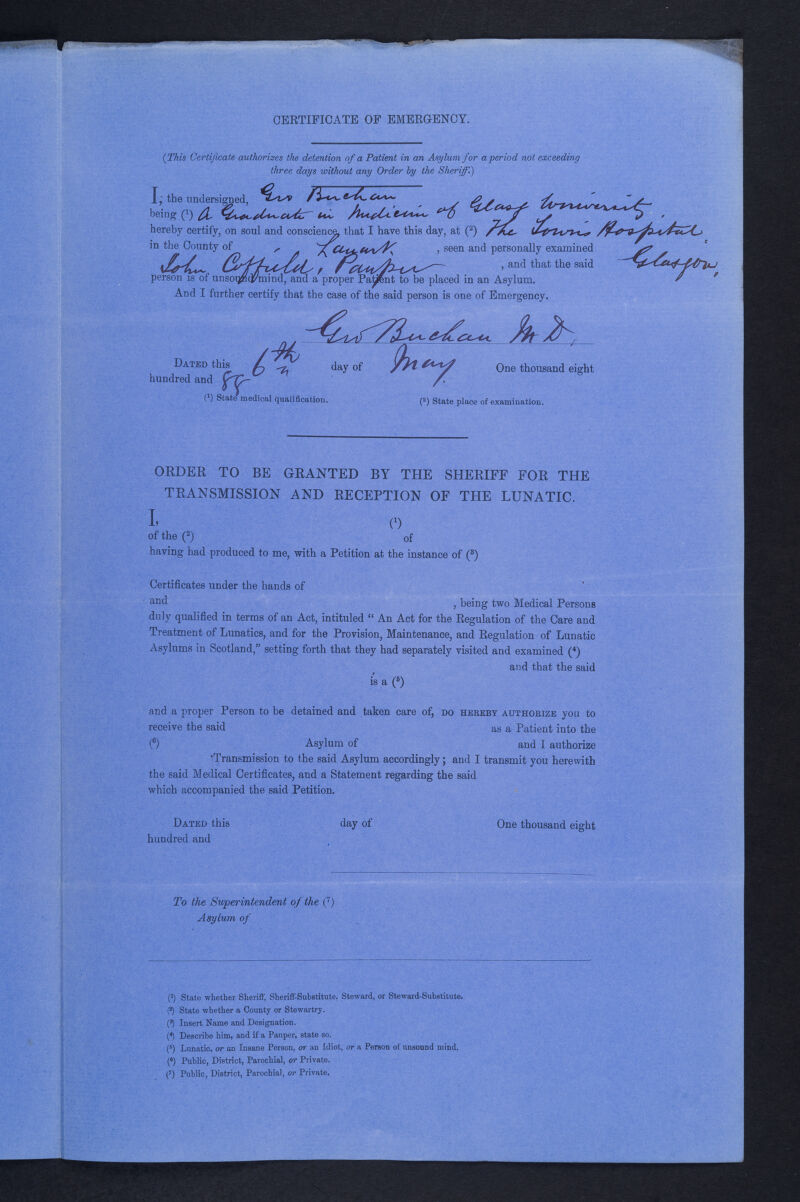 CERTIFICATE OF EMERGENCY.
(This Certificate authorizes the detention of a Patient in an Asylum for a period not exceeding
three days without any Order by the Sheriff.)
I, the undersigned, Geo Buchan
being (1) A Graduate in Medicine of Glasg University,
hereby certify, on soul and conscience, that I have this day, at (2) The Towns Hospital, Glasgow,
in the County of Lanark, seen and personally examined
John Coffield, Pauper, and that the said
person is of unsound mind, and a proper Patient to be placed in an Asylum.
And I further certify that the case of the said person is one of Emergency.
Geo Buchan M D,
DATED this 6th day of May One thousand eight
hundred and
(1) State medical qualification. (2) State place of examination.
ORDER TO BE GRANTED BY THE SHERIFF FOR THE
TRANSMISSION AND RECEPTION OF THE LUNATIC.
I, (1)
of the (2) of
having had produced to me, with a Petition at the instance of (3)
Certificates under the hands of
and , being two Medical Persons
duly qualified in terms of an Act, intituled “ An Act for the Regulation of the Care and
Treatment of Lunatics, and for the Provision, Maintenance, and Regulation of Lunatic
Asylums in Scotland,” setting forth that they had separately visited and examined (4)
and that the said
is a (5)
and a proper Person to be detained and taken care of, DO HEREBY AUTHORIZE you to
receive the said as a Patient into the
(6) Asylum of and I authorize
Transmission to the said Asylum accordingly; and I transmit you herewith
the said Medical Certificates, and a Statement regarding the said
which accompanied the said Petition.
DATED this day of One thousand eight
hundred and
To the Superintendent of the (7)
Asylum of
(1) State whether Sheriff, Sheriff-Substitute, Steward, or Steward-Substitute.
(2) State whether a County or Stewartry.
(3) Insert Name and Designation.
(4) Describe him, and if a Pauper, state so.
(5) Lunatic, or an Insane Person, or an Idiot, or a Person of unsound mind.
(6) Public, District, Parochial, or Private.
(7) Public, District, Parochial, or Private.